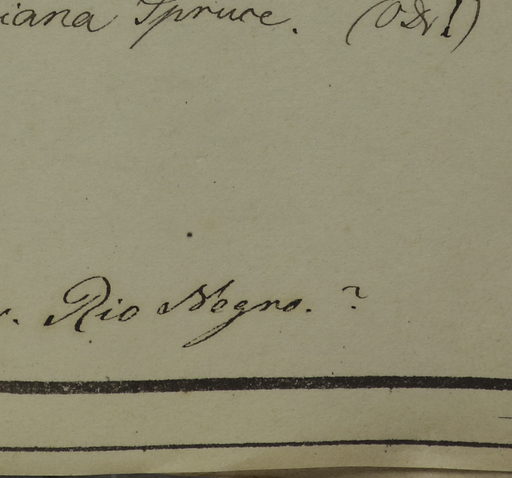 iana Spruce. (O Dr!)
. Rio Negro. ?